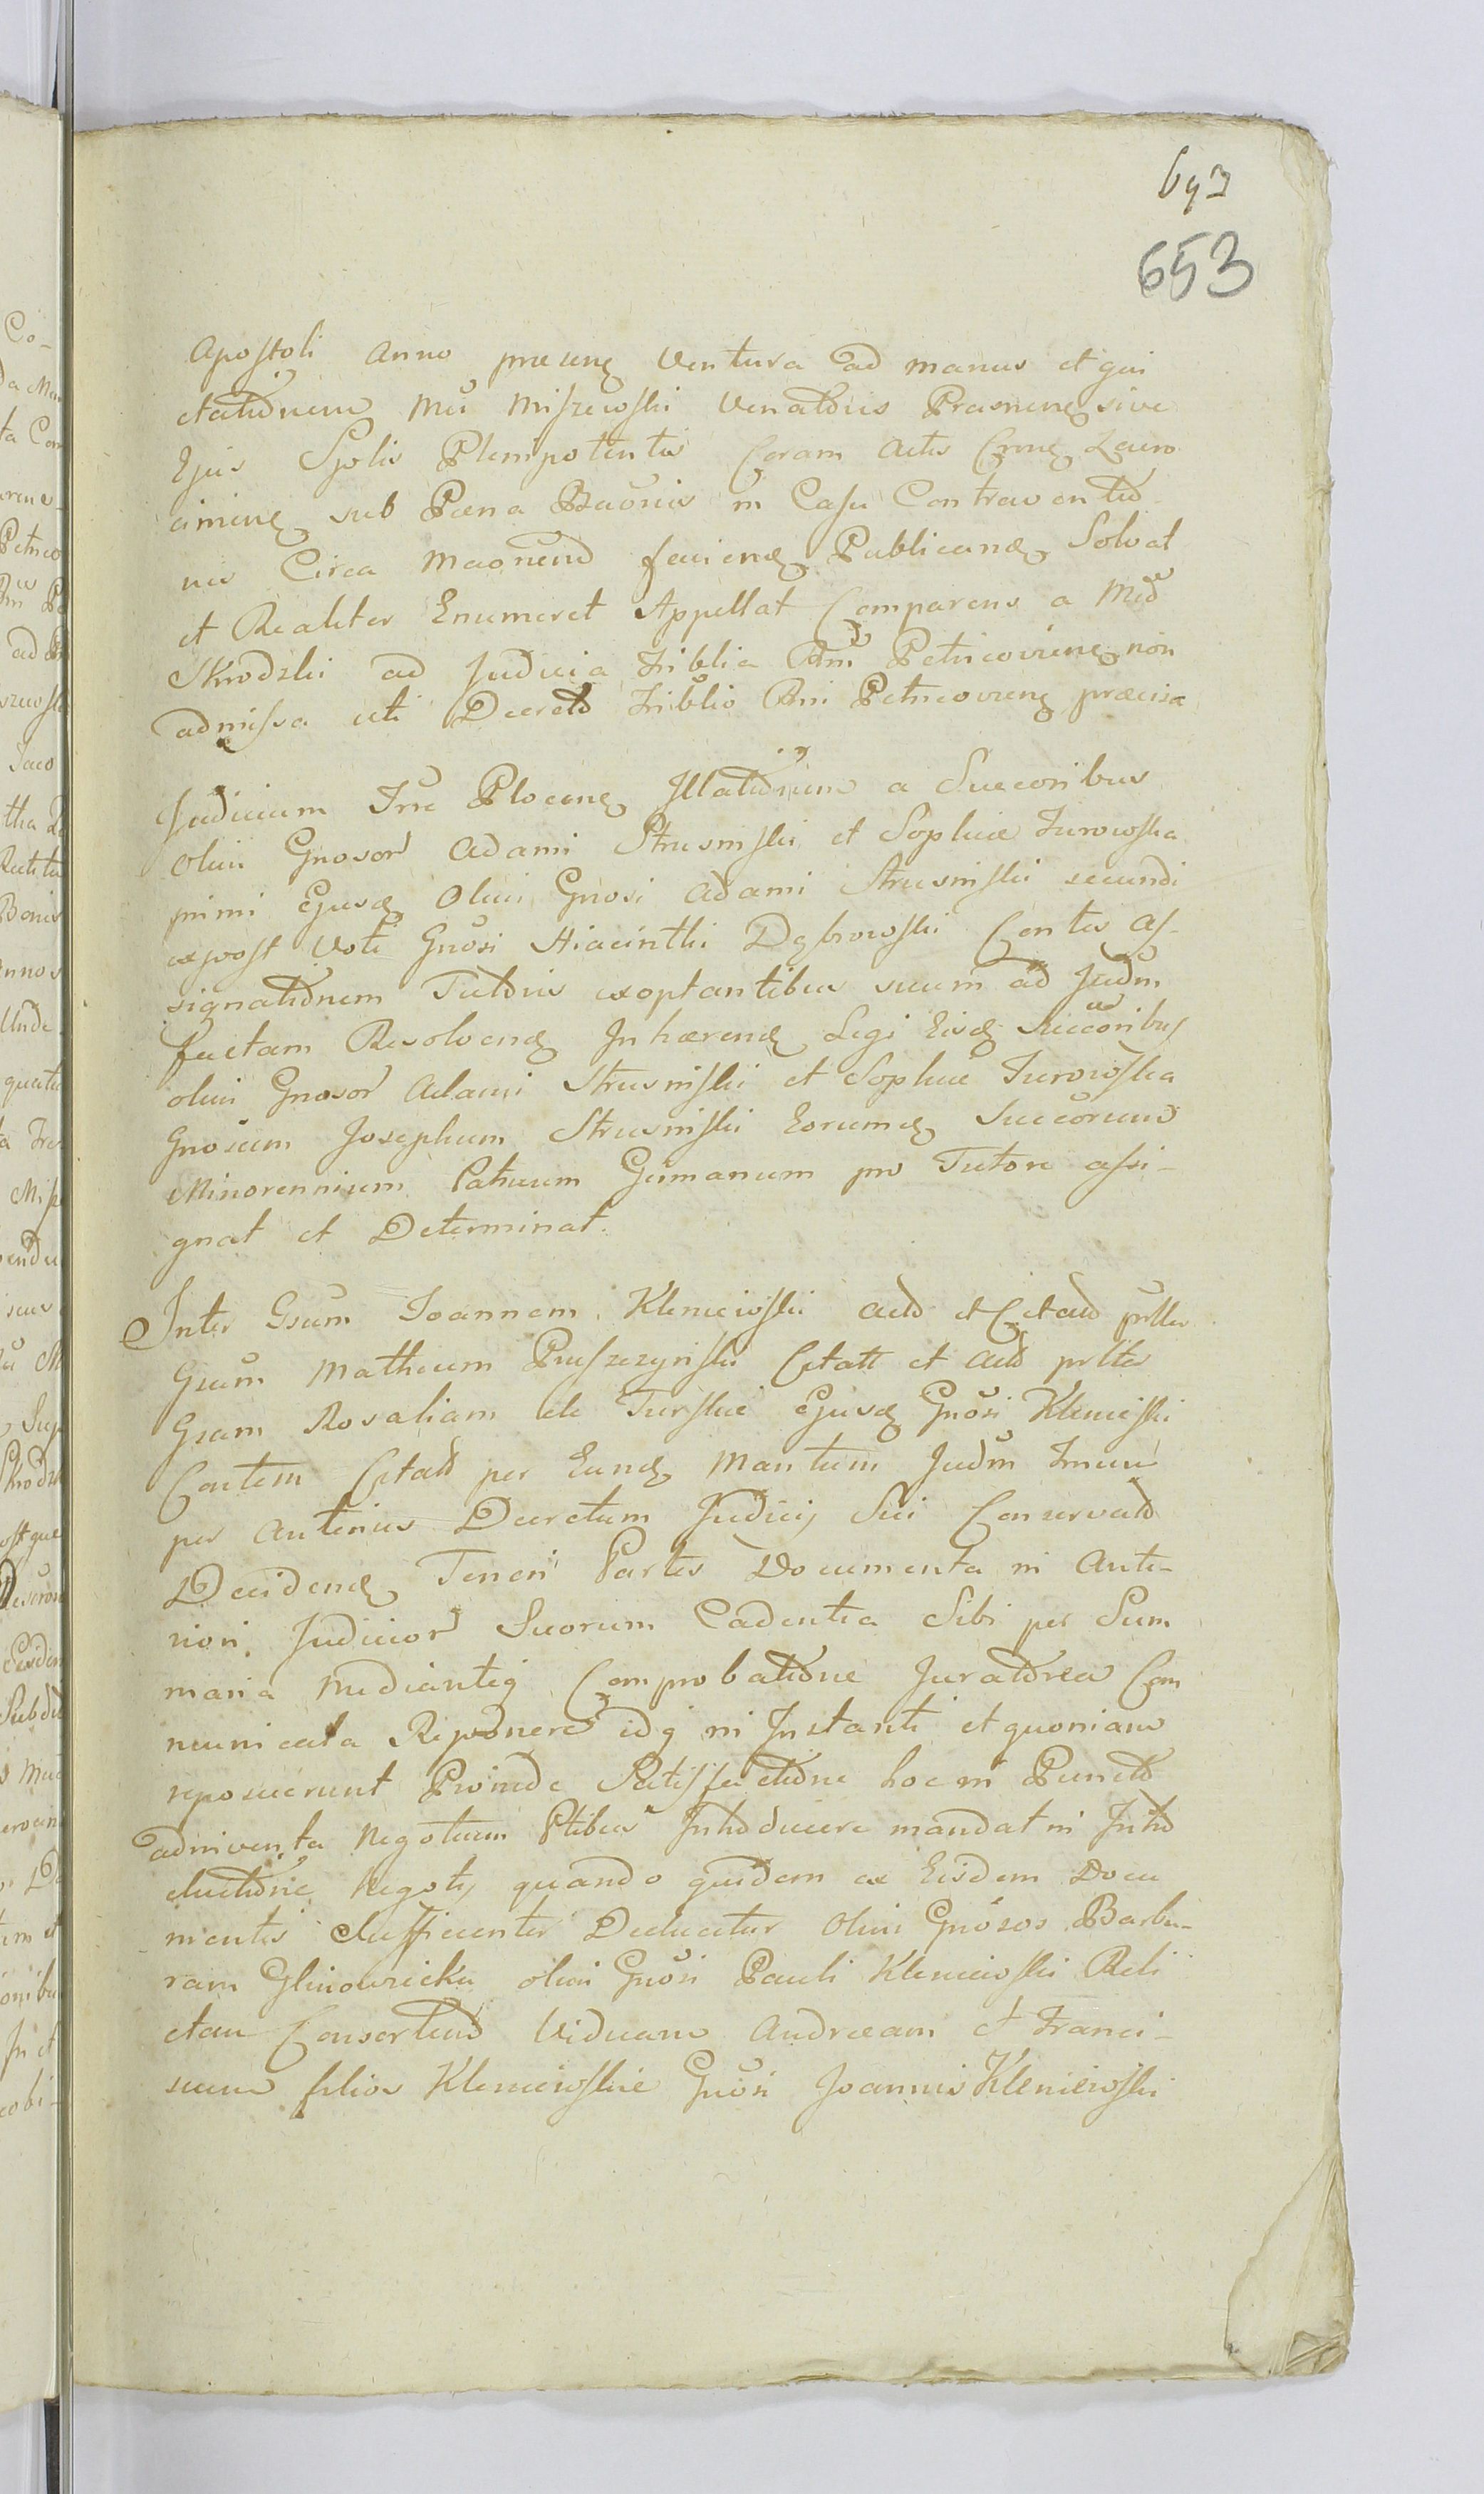 693
653
Apostoli Anno præsenę Ventura ad manus et qui
etatõnem Mci Miszewski Venatõris Prasnenę sive
Ejus Spõlis Plenipotentis Coram Actis Crnę Zawo
crinenę sub Pœna Bãonis in Casu Contraventiõ
nis Circa Maõnem faciendę Publicandę Solvat
et Realiter Enumeret Appellat Comparens a Mcõ
Skrodzki ad Judicia Triblia Rni Petricovienę non
admissa uti Decretõ Triblio Rni Petricovienę præcisa
Judicium Trre Plocenę Illatiõnem a Succoribus
olim Gnosor Adami Strusinski et Sophiæ Zurowska
primi Ejusdę olim Gnosi Adami Strusinski secundi
expost Voti Gnõsi Hiacinthi Dąbrowski Contis As-
signatiõnem Tutõris exoptantibus suum ad Judm
factam Resolvendę Inhærendę Legi Eisdę Succõribus
olim Gnosor Adami Strusinski et Sophiæ Zurowska
Gnosum Josephum Strusinski Eorumdę Succorum
Minorennium Patruum Germanum pro Tutore assi-
gnat et Determinat.
Inter Gsum Joannem Kleniewski Actõ et Citatõ
Gsum Mathæum Pruszczynski Citatt et Actõ
Gsam Rosaliam de Turskie Ejusdę Gnõsi Kleniewski
Contem Citatõ per Eundę Maritum Judm Trnum
per Anterius Decretum Judicij Sui Conservatõ
Decidendę Teneri Partes Documenta in Ante-
riori Judicior Suorum Cadentia Sibi per Sum
maria mediantię Comprobatiõne Juratõrea Com
municata Reponere idq in Instanti et quoniam
reposuerunt Proinde Satisfactiõne hoc in Punctõ
adinventa Negotium Ptibus Introducere mandat in Intro
ductiõne Negotij quando quidem ex Eisdem Docu
mentis Sufficienter Deducitur olim Gnõsos Barba-
ram Glinowiecka olim Gnõsi Pauli Kleniewski Reli
ctam Consortem Viduam Andream et Franci-
scum filios Kleniewskie Gnõsi Joannis Kleniewski